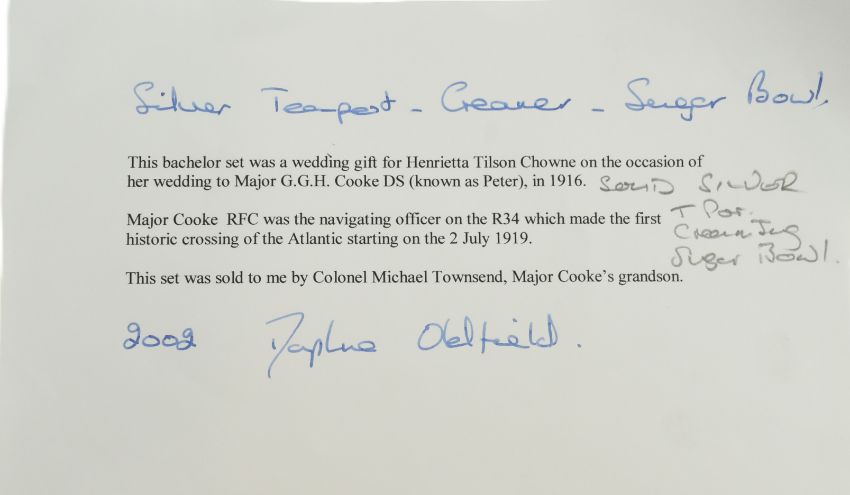 Silver Teapost - Creamer - Suger Bowl.
This bachelor set was a wedding gift for Henrietta Tilson Chowne on the occasion of
her wedding to Major G.G.H. Cooke DS (known as Peter), in 1916. SOLID SILVOR
Major Cooke RFC was the navigating officer on the R34 which made the first T Pot.
historic crossing of the Atlantic starting on the 2 July 1919. Cream Jug
Suger Bowl.
This set was sold to me by Colonel Michael Townsend, Major Cooke's grandson.
2002 Daphne Oldfield.